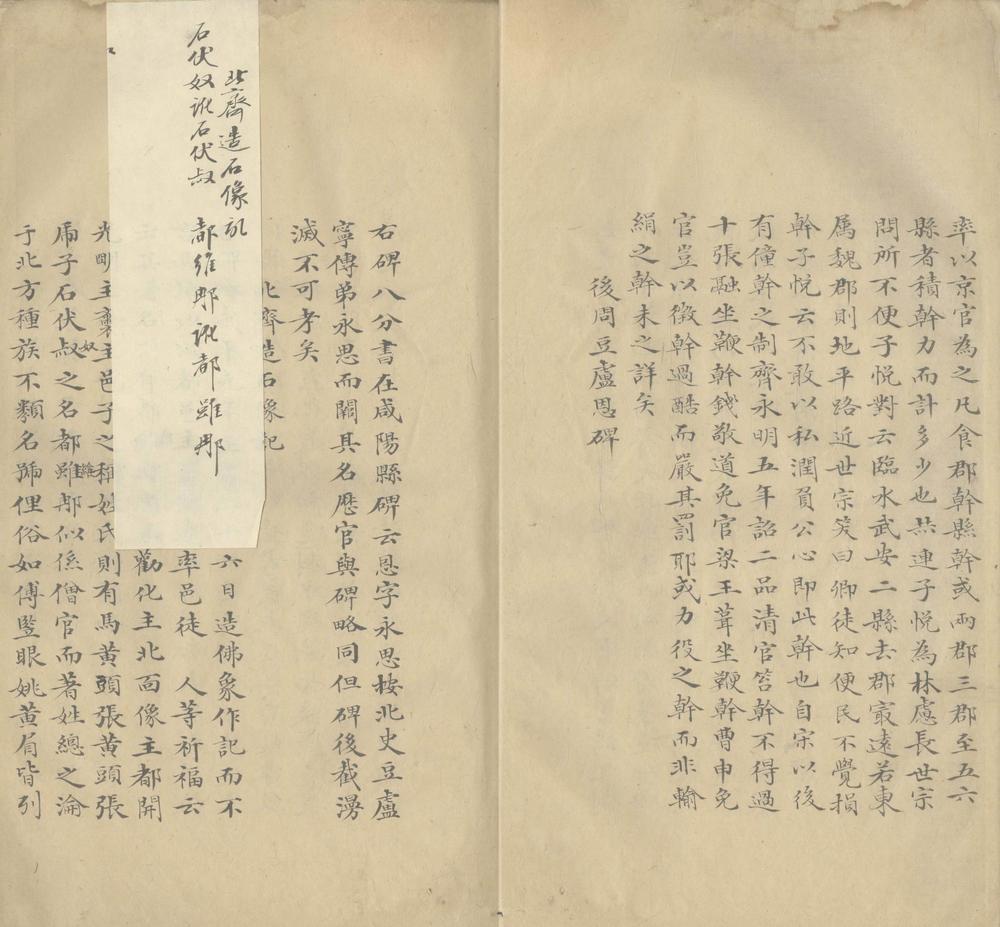 率以京官為之凡食郡幹縣幹或兩郡三郡至五六
縣者積幹力而計多少也然連子悅為林慮長世宗
問所不便子悅對云臨水武安二縣去郡㝡遠若東
属魏郡則地平路近世宗笑曰卿徒知便民不覺損
幹子悅云不敢以私潤負公心即此幹也自宋以後
有僮幹之制齊永明五年詔二品清官笞幹不得過
十張融坐鞭幹錢敬道免官梁王葺坐鞭幹曹申免
官豈以徵幹過酷而嚴其罰耶或力役之幹而非輸
絹之幹未之詳矣
後周豆盧恩碑
右碑八分書在咸陽縣碑云恩字永思按北史豆盧
寧傳弟永思而闕其名歷官與碑略同但碑後截漫
滅不可考矣
北齊造石像記
北齊造石像記
石伏奴訛石伏叔
都維那訛都雖那
六日造佛象作記而不
率邑徒　人等祈福云
勸化主北面像主都開
光明主齋主邑子之稱姓氏則有馬黃頭張黃頭張
奴
虎子石伏叔之名都雖那似係僧官而著姓總之淪
維
于北方種族不類名號俚俗如傅豎眼姚黃眉皆列